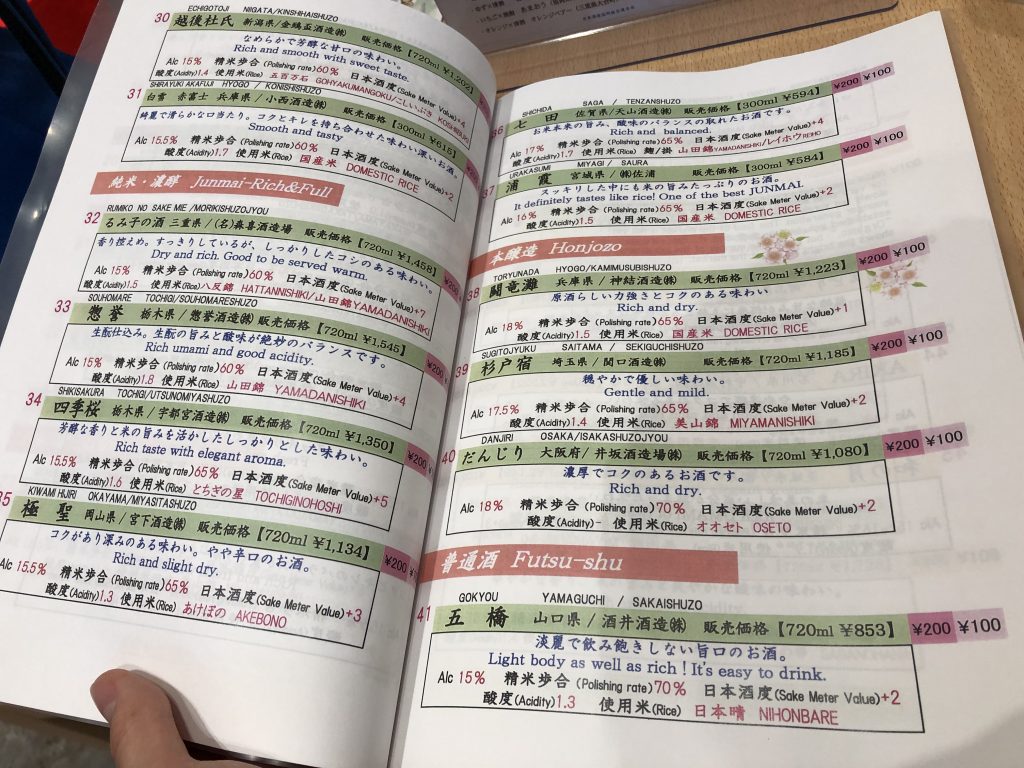 ECHIGOTOJI NIIGATA/KINSHIHAISHUZO
30 越後杜氏 新潟県/金鵄盃酒造㈱ 販売価格【720ml ¥1,202】
なめらかで芳醇な甘口の味わい。
Rich and smooth with sweet taste.
Alc 15% 精米歩合 (Polishing rate)60% 日本酒度(Sake Meter Value)-4
酸度(Acidity)1.4 使用米(Rice) 五百万石 GOHYAKUMANGOKU/こしいぶき KOSHIIBUKI
SHIRAYUKI AKAFUJI HYOGO / KONISHISHUZO
31 白雪 赤富士 兵庫県/小西酒造㈱ 販売価格【300ml ¥615】
綺麗で清らかな口当たり。コクとキレを持ち合わせた味わい深いお酒。
Smooth and tasty
Alc 15.5% 精米歩合(Polishing rate)60% 日本酒度(Sake Meter Value)+2
酸度(Acidity)1.7 使用米(Rice) 国産米 DOMESTIC RICE
純米・濃醇 Junmai-Rich&Full
RUMIKO NO SAKE MIE /MORIKISHUZOJYOU
32 るみ子の酒 三重県/(名)森喜酒造場 販売価格【720ml ¥1,458】
香り控えめ。すっきりしているが、しっかりしたコシのある味わい。
Dry and rich. Good to be served warm.
Alc 15% 精米歩合(Polishing rate)60% 日本酒度(Sake Meter Value)+7
酸度(Acidity)1.5 使用米(Rice)八反錦 HATTANNISHIKI/山田錦YAMADANISHIKI
¥200
SOUHOMARE TOCHIGI/SOUHOMARESHUZO
33 惣誉 栃木県/惣誉酒造㈱ 販売価格【720ml ¥1,545】
生酛仕込み。生酛の旨みと酸味が絶妙のバランスです。
Rich umami and good acidity.
Alc 15% 精米歩合(Polishing rate)60% 日本酒度(Sake Meter Value)+4
酸度(Acidity)1.8 使用米(Rice) 山田錦 YAMADANISHIKI
¥200
SHIKISAKURA TOCHIGI/UTSUNOMIYASHUZO
34 四季桜 栃木県/宇都宮酒造㈱ 販売価格【720ml ¥1,350】
芳醇な香りと米の旨みを活かしたしっかりとした味わい。
Rich taste with elegant aroma.
Alc 15.5% 精米歩合(Polishing rate)65% 日本酒度(Sake Meter Value)+5
酸度(Acidity)1.6 使用米(Rice) とちぎの星 TOCHIGINOHOSHI
¥200
KIWAMI HIJIRI OKAYAMA/MIYASITASHUZO
35 極 聖 岡山県/宮下酒造㈱ 販売価格【720ml ¥1,134】
コクがあり深みのある味わい。やや辛口のお酒。
Rich and slight dry.
Alc 15.5% 精米歩合(Polishing rate)65% 日本酒度(Sake Meter Value)+3
酸度(Acidity)1.3 使用米(Rice) あけぼの AKEBONO
¥200
SHICHIDA SAGA / TENZANSHUZO
36 七 田 佐賀県/天山酒造㈱ 販売価格【300ml ¥594】 ¥200 ¥100
お米本来の旨み、酸味のバランスの取れたお酒です。
Rich and balanced.
Alc 17% 精米歩合(Polishing rate)65% 日本酒度(Sake Meter Value)+4
酸度(Acidity)1.7 使用米(Rice) 麹/掛 山田錦YAMADANISHIKI/レイホウREIHO
URAKASUMI MIYAGI / SAURA
37 浦 霞 宮城県/㈱佐浦 販売価格【300ml ¥584】 ¥200 ¥100
スッキリした中にも米の旨みたっぷりのお酒。
It definitely tastes like rice! One of the best JUNMAI.
Alc 16% 精米歩合(Polishing rate)65% 日本酒度(Sake Meter Value)+2
酸度(Acidity)1.5 使用米(Rice) 国産米 DOMESTIC RICE
本醸造 Honjozo
TORYUNADA HYOGO/KAMIMUSUBISHUZO
38 闘竜灘 兵庫県/神結酒造㈱ 販売価格【720ml ¥1,223】 ¥200 ¥100
原酒らしい力強さとコクのある味わい
Rich and dry.
Alc 18% 精米歩合(Polishing rate)65% 日本酒度(Sake Meter Value)+1
酸度(Acidity)1.5 使用米(Rice) 国産米 DOMESTIC RICE
SUGITOJYUKU SAITAMA / SEKIGUCHISHUZO
39 杉戸宿 埼玉県/関口酒造㈱ 販売価格【720ml ¥1,185】 ¥200 ¥100
穏やかで優しい味わい。
Gentle and mild.
Alc 17.5% 精米歩合(Polishing rate)65% 日本酒度(Sake Meter Value)+2
酸度(Acidity)1.4 使用米(Rice) 美山錦 MIYAMANISHIKI
DANJIRI OSAKA/ISAKASHUZOJYOU
40 だんじり 大阪府/井坂酒造場㈱ 販売価格【720ml ¥1,080】 ¥200 ¥100
濃厚でコクのあるお酒です。
Rich and dry.
Alc 18% 精米歩合(Polishing rate)70% 日本酒度(Sake Meter Value)+2
酸度(Acidity)- 使用米(Rice) オオセト OSETO
普通酒 Futsu-shu
GOKYOU YAMAGUCHI / SAKAISHUZO
41 五 橋 山口県/酒井酒造㈱ 販売価格【720ml ¥853】 ¥200 ¥100
淡麗で飲み飽きしない旨口のお酒。
Light body as well as rich ! It's easy to drink.
Alc 15% 精米歩合(Polishing rate)70% 日本酒度(Sake Meter Value)+2
酸度(Acidity)1.3 使用米(Rice) 日本晴 NIHONBARE